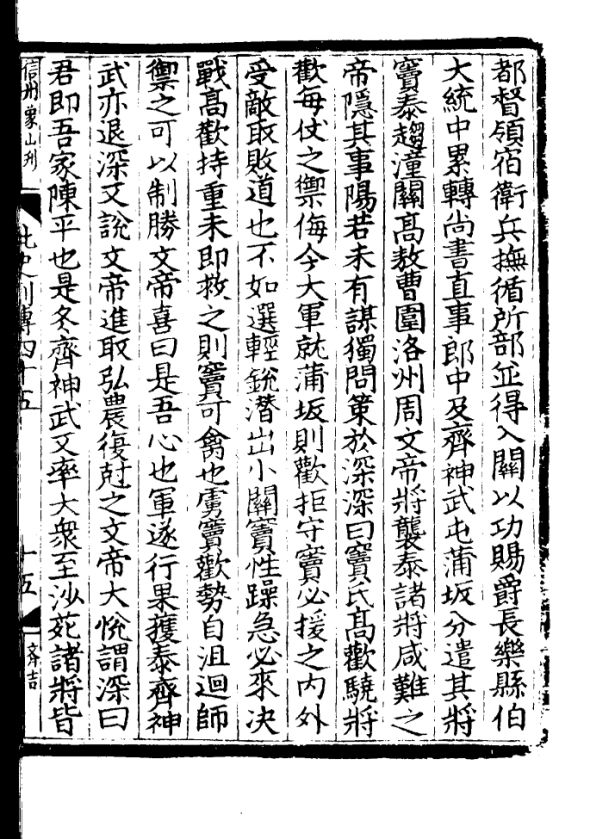 都督領宿衛兵撫循所部並得入關以功賜爵長樂縣伯
大統中累轉尚書直事郎中及齊神武屯蒲坂分遣其將
竇泰趨潼關高敖曹圍洛州周文帝將襲泰諸將咸難之
帝隱其事陽若未有謀獨問策於深深曰竇氏高歡驍將
歡每仗之禦侮今大軍就蒲坂則歡拒守竇必援之內外
受敵取敗道也不如選輕銳潛出小關竇性躁急必來決
戰高歡持重未即救之則竇可禽也虜竇歡勢自沮迴師
禦之可以制勝文帝喜曰是吾心也軍遂行果獲泰齊神
武亦退深又說文帝進取弘農復尅之文帝大恱謂深曰
君即吾家陳平也是冬齊神武又率大衆至沙苑諸將皆
信州象山刋
北史列傳四十五
十五